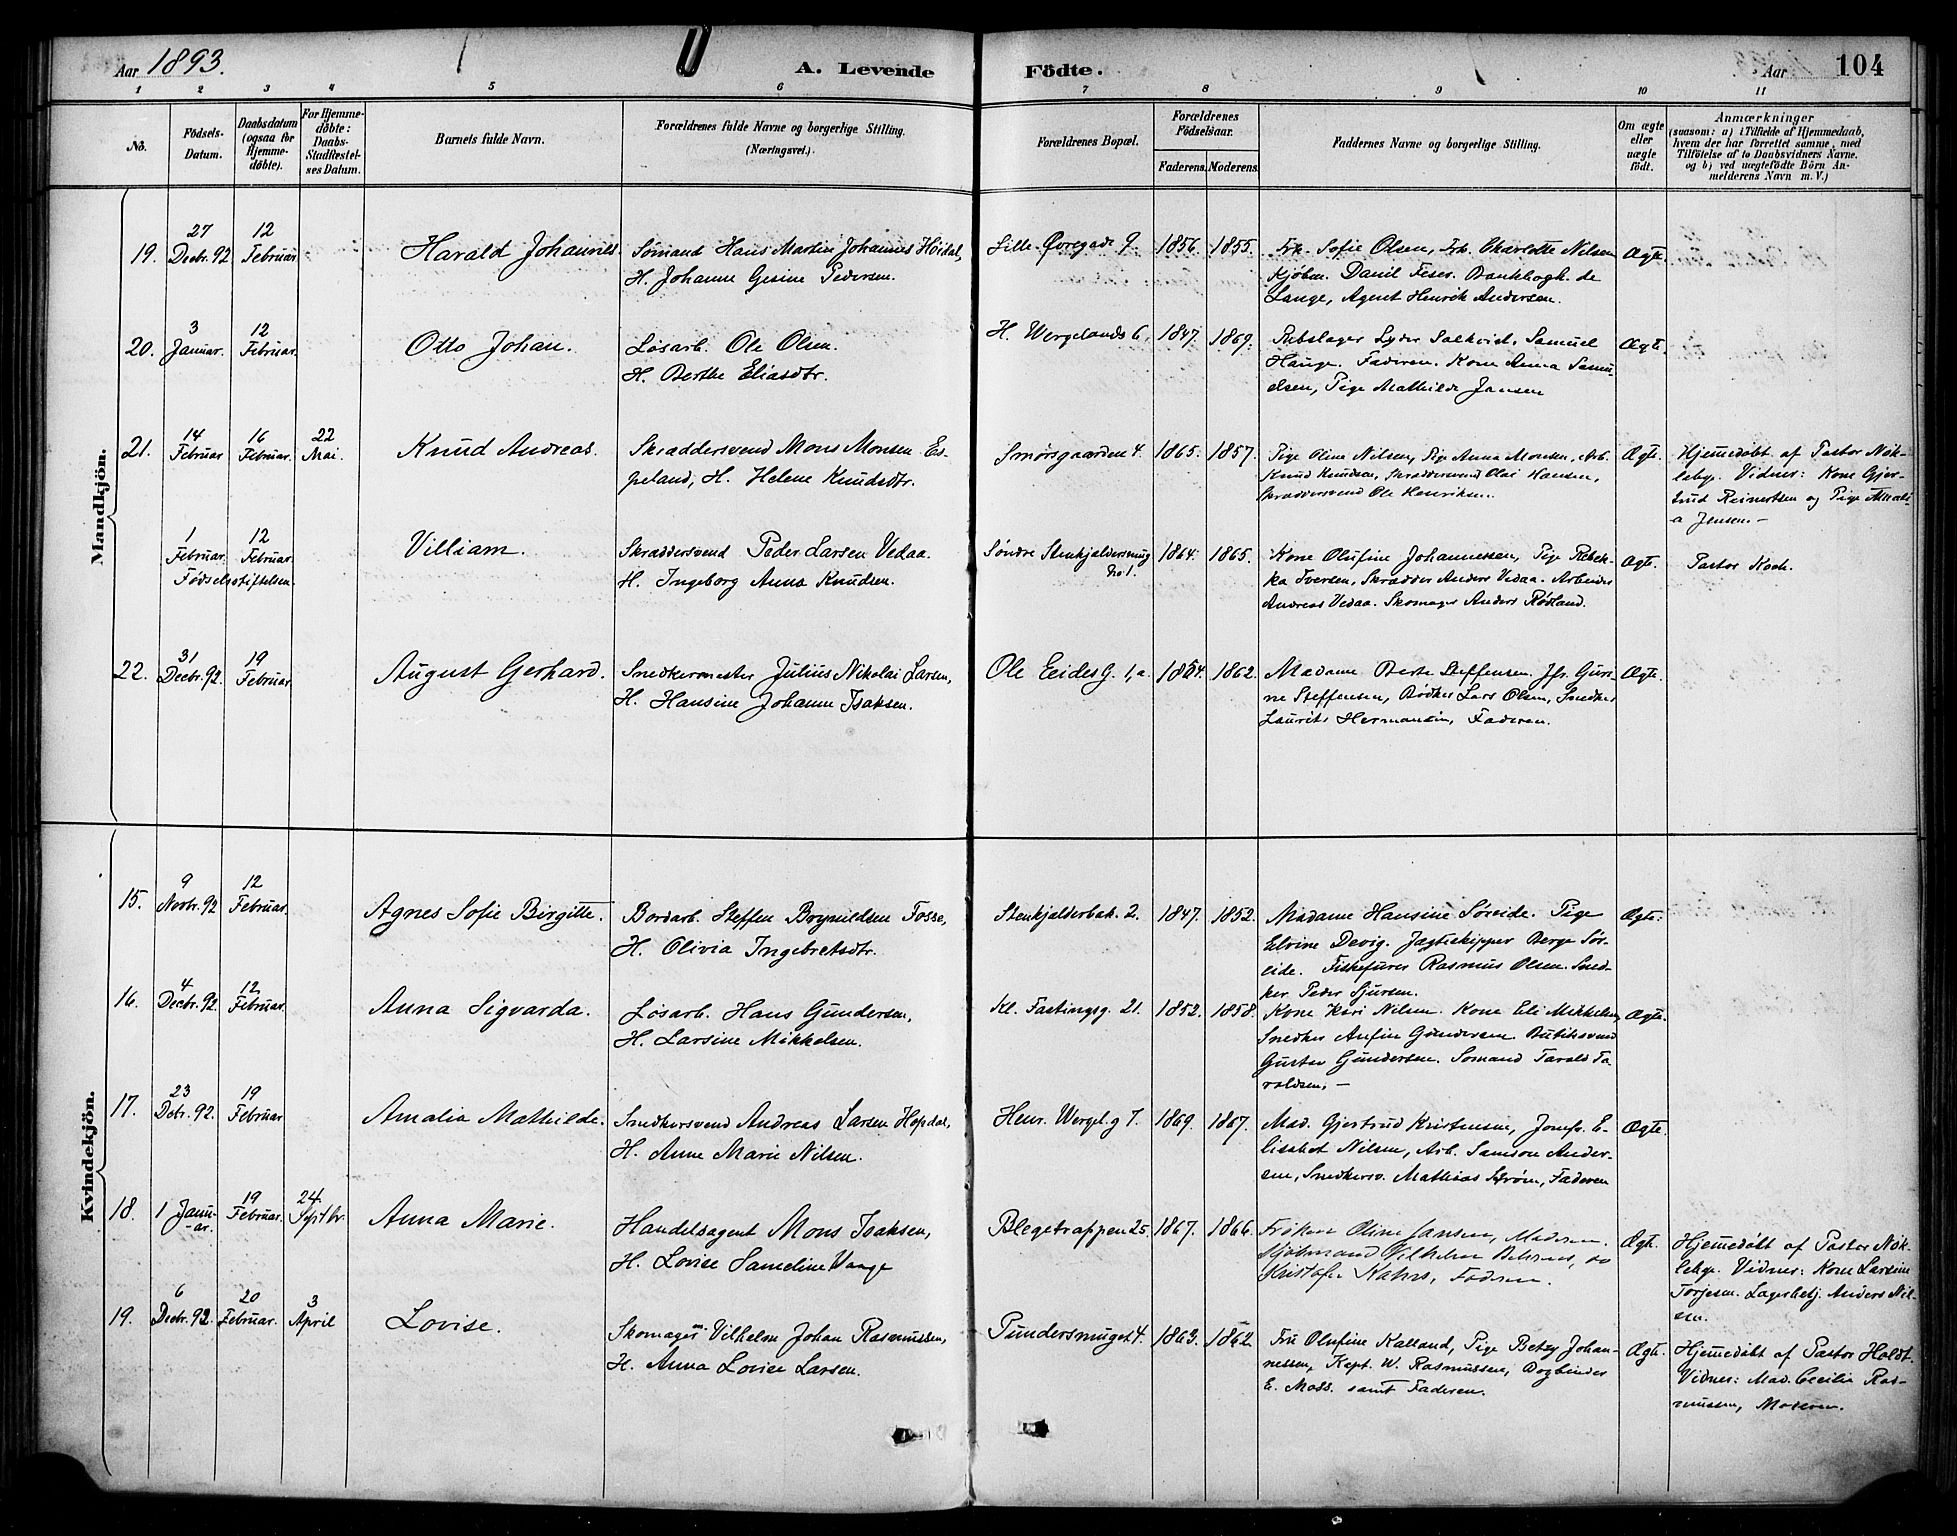 Aar 1893.
A. Levende
Födte.
Aar
104
1 2 3 4 5 6 7 8 9 10 11
No.
Födsels-
Datum.
Daabsdatum
(ogsaa for
Hjemme-
döbte).
For Hjemme-
döbte:
Daabs-
Stadfæstel-
ses Datum.
Barnets fulde Navn.
Forældrenes fulde Navne og borgerlige Stilling.
(Næringsvei.)
Forældrenes Bopæl.
Forældrenes
Födselsaar.
Faderens. Moderens.
Faddernes Navne og borgerlige Stilling.
Om ægte
eller
uægte
födt.
Anmærkninger
(saasom: a) i Tilfælde af Hjemmedaab,
hvem der har forrettet samme, med
Tilföielse af to Daabsvidners Navne.
og b) ved uægtefödte Börn An-
melderens Navn m. V.)
Mandkjön.
19.
27
Decbr. 92
12
Februar
Harald Johannes.
Sømand Hans Martin Johannes Høidal,
H. Johanne Gesine Pedersen.
Lille Øvregade 9.
1856. 1855.
Frk. Sofie Olsen, Frk. Charlotte Nilsen
Kjøbm. Daniel Feser. Bankbogh. de
Lange, Agent Henrik Andersen.
Ægte.
20.
3
Januar.
12
Februar.
Otto Johan.
Løsarb. Ole Olsen.
H. Berthe Eliasdtr.
H. Wergelands 6.
1847. 1869.
Rebslager Lyder Salkvid. Samuel
Hauge. Faderen. Kone Anna Samu-
elsen, Pige Mathilde Jansen
Ægte.
21.
14
Februar
16
Februar.
22
Mai.
Knud Andreas.
Skræddersvend Mons Monsen Es-
peland, H. Helene Knudsdtr.
Smørsgaarden 4.
1865. 1857.
Pige Oline Nilsen, Pige Anna Monsen, Arb.
Knud Knudsen, Skræddersvend Olai Hansen,
Skræddersvend Ole Henriksen.
Ægte.
Hjemmedøbt af Pastor Nøk-
leby. Vidner: Kone Gjer-
trud Reinertsen og Pige Amali-
a Jensen.-
1
Februar.
12
Februar
Fødselsstiftelsen.
Villiam.
Skræddersvend Peder Larsen Vedaa.
H. Ingeborg Anna Knudsen.
Søndre Stenkjeldersmug
No 1.
1864. 1865.
Kone Olufine Johannessen, Pige Rebek-
ka Iversen, Skrædder Anders Vedaa. Arbeider
Andreas Vedaa. Skomager Anders Røsland.
Ægte.
Pastor Koch.
22.
31
Decbr. 92.
19
Februar.
August Gerhard.
Snedkermester Julius Nikolai Larsen,
H. Hansine Johanne Isaksen.
Ole Eides G. 1, a.
1854. 1862.
Madame Berte Steffensen. Jfr. Guri-
ne Steffensen, Bødker Lars Olsen, Snedker
Laurits Hermansen, Faderen.
Ægte.
Kvindekjön.
15.
9
Novbr. 92
12
Februar.
Agnes Sofie Birgitte.
Bordarb. Steffen Brynildsen Fosse,
H. Olivia Ingebretsdtr.
Stenkjelderbak. 2.
1847. 1852.
Madame Hansine Søreide. Pige
Elvine Devig. Jagteskipper Berge Sør-
eide. Fiskefører Rasmus Olsen. Sned-
ker Peder Sjursen.
Ægte.
16.
4
Decbr. 92.
12
Februar.
Anna Sigvarda.
Løsarb. Hans Gundersen,
H. Larsine Mikkelsen.
Kl. Fastingsg. 21.
1852. 1858.
Kone Kari Nilsen. Kone Eli Mikkelsen,
Snedker Anfin Gundersen Butiksvend
Gustav Gundersen. Sømand Tarald Ta-
raldsen.-
Ægte.
17.
23
Dcbr. 92.
19
Februar
Amalia Mathilde.
Snedkersvend Andreas Larsen Hopdal,
H. Anne Marie Nilsen.
Henr. Wergel. g 7.
1869. 1867.
Mad. Gjertrud Kristensen, Jomfr. E-
lisabet Nilsen, Arb. Samson Ander-
sen, Snedkersv. Mathias Strøm, Faderen
Ægte.
18.
1 Janu-
ar.
19
Februar.
24.
Septbr.
Anna Marie.
Handelsagent Mons Isaksen,
H. Lovise Sameline Vaage
Blegetrappen 25.
1867. 1866.
Frøken Oline Jansen, Moderen.
Sjømand Vilhelm Behrens, og
Kristofer Kahrs, Faderen.
Ægte.
Hjemmedøbt af Pastor Nøk-
leby. Vidner: Kone Larsine
Torjesen. Lagerbetj. Anders Nil-
sen.
19.
6
Decbr. 92.
20
Februar.
3
April
Lovise.
Skomager Vilhelm Johan Rasmussen,
H. Anna Lovise Larsen.
Pundersmuget 4.
1863. 1862.
Fru Olufine Kalland, Pige Betzy Johan-
nessen, Kapt. W. Rasmussen, Bogbinder
E. Moss. samt Faderen.
Ægte.
Hjemmedøbt af Pastor Holdt.
Vidner: Mad. Cecilie Ras-
mussen, Moderen.